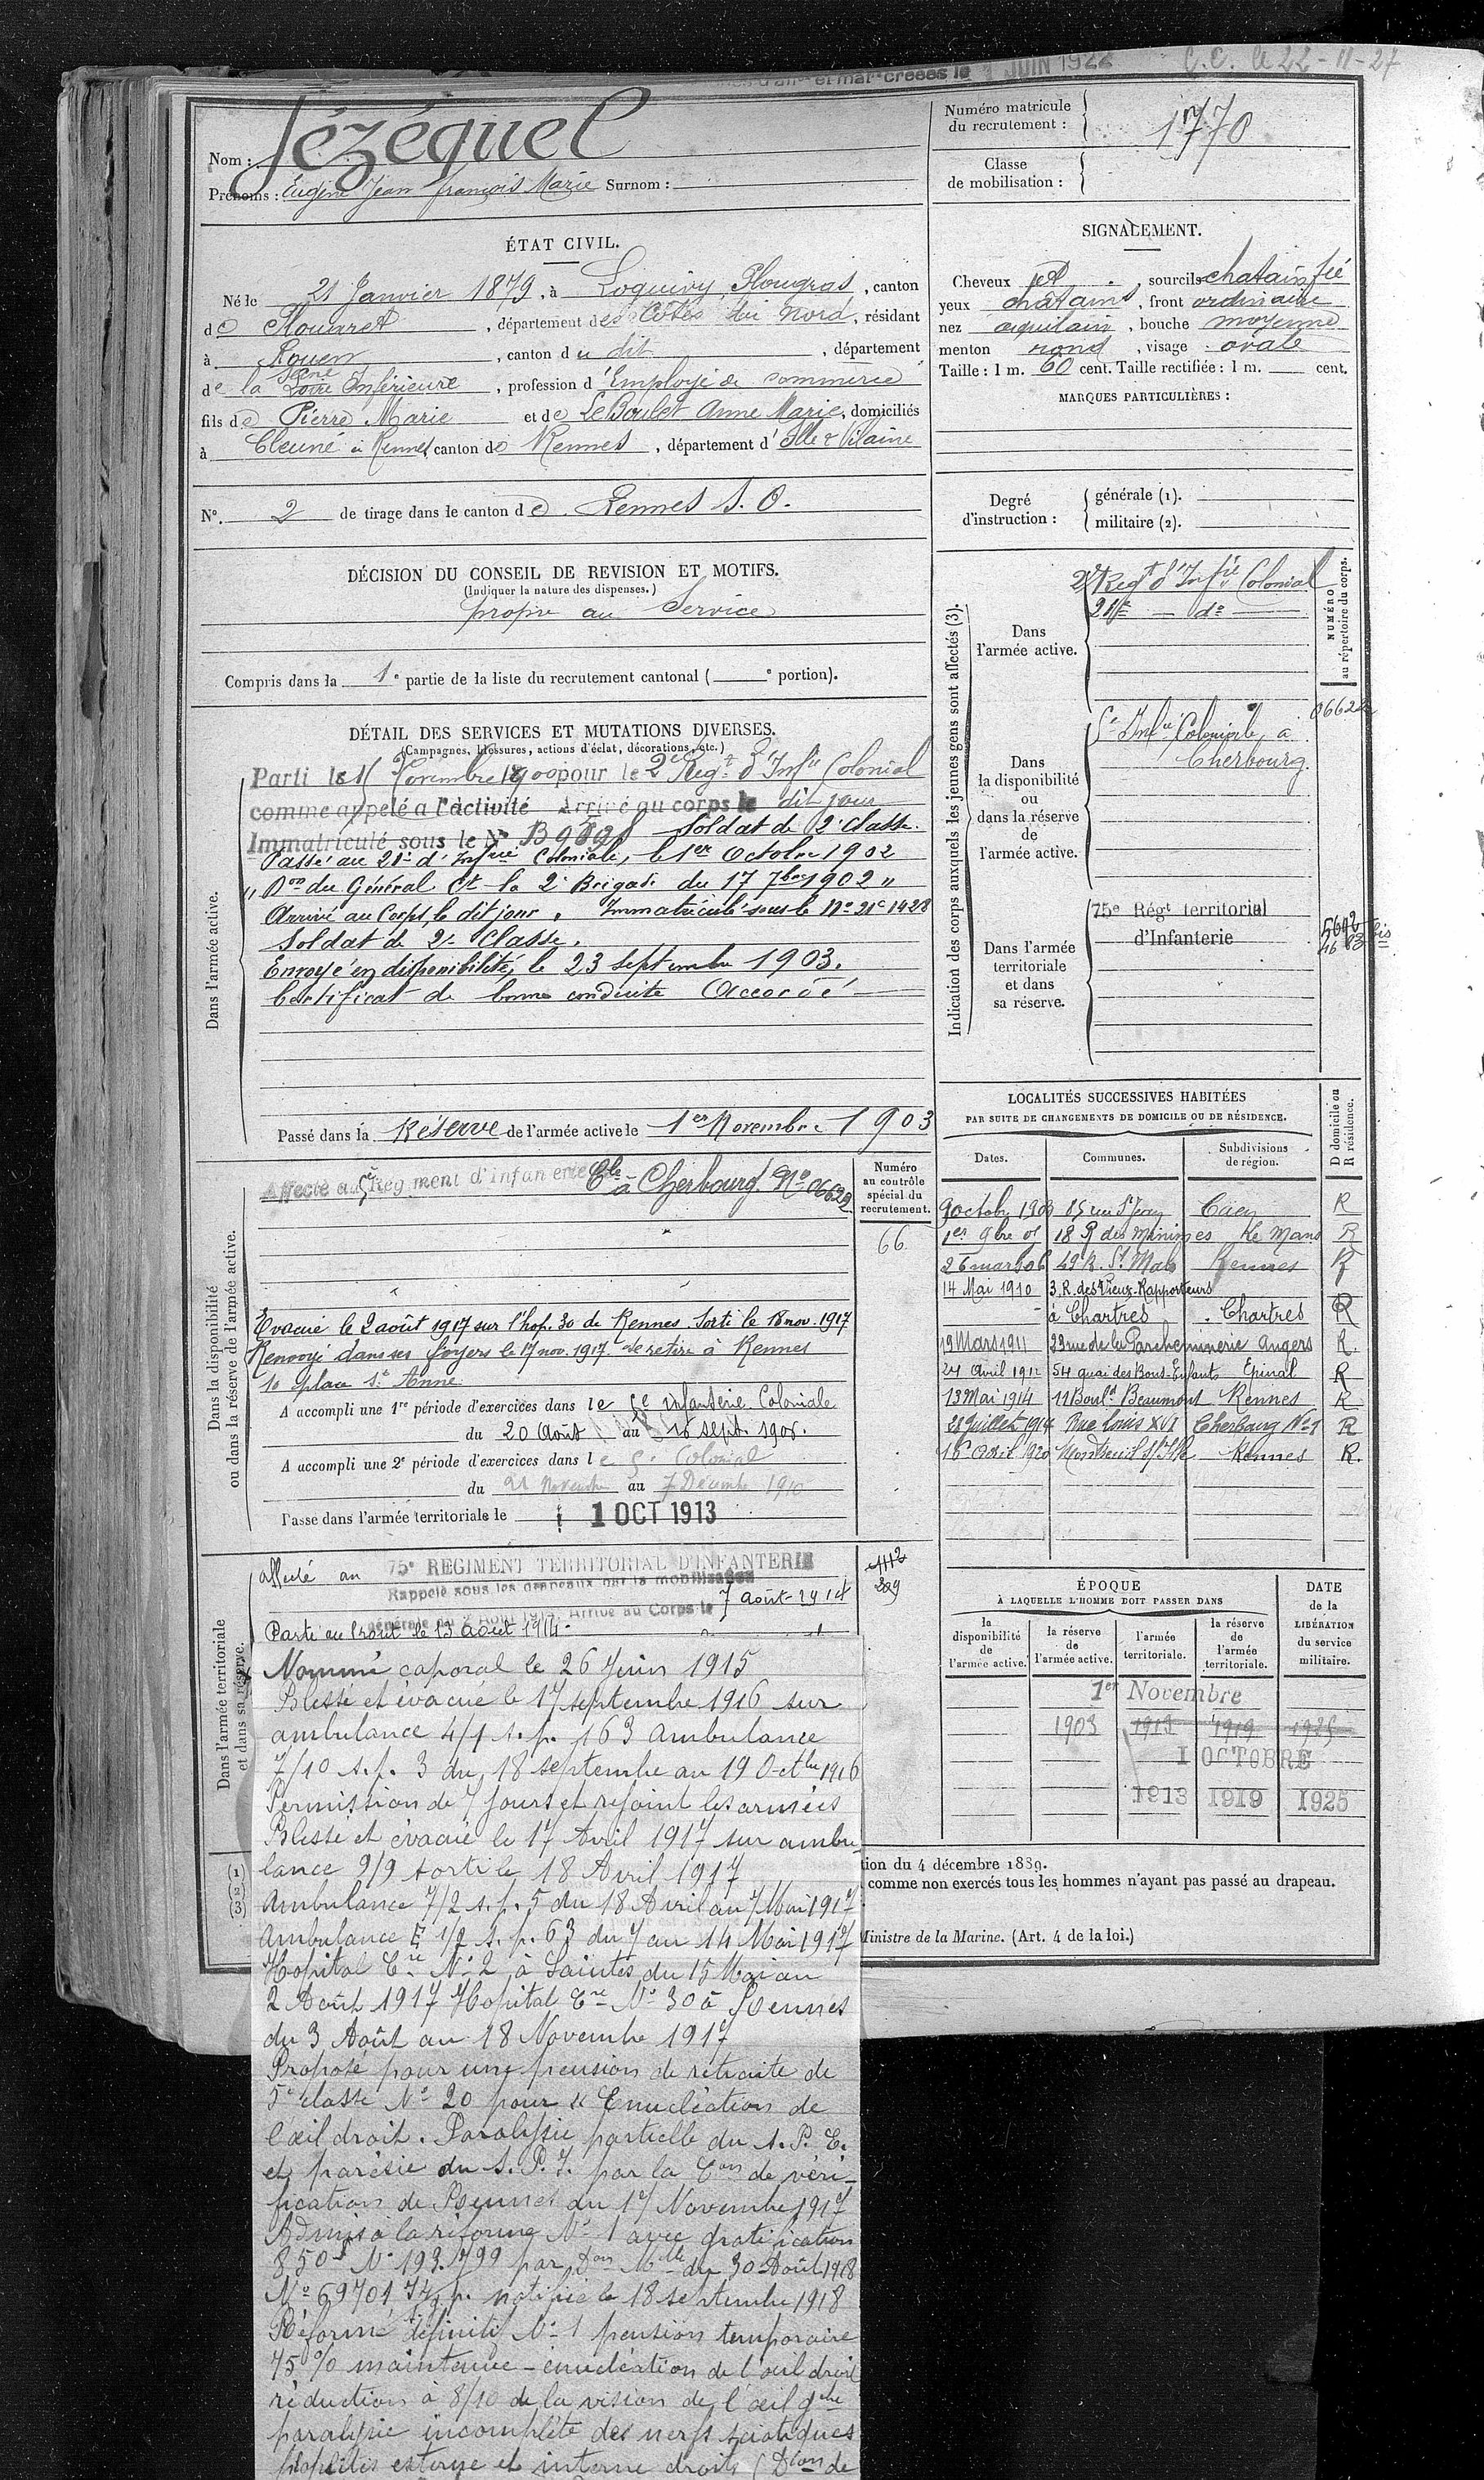 1 JUIN 1922
C.C. le 22-11-27
Nom : Jézéquel
Prénoms : Eugène Jean François Marie Surnom :
Numéro matricule du recrutement : 1770
Classe de mobilisation :
ÉTAT CIVIL.
Né le 21 Janvier 1879, à Loquivy Plougras, canton
de Plouaret, département des Côtes du Nord, résidant
à Rouen, canton du dit, département
de la Seine Loire Inférieure, profession d'Employé de commerce
fils de Pierre Marie et de Le Boulet Anne Marie, domiciliés
à Cleuné en Rennes, canton de Rennes, département d'Ille & Vilaine
N° 2 de tirage dans le canton de Rennes S. O.
SIGNALEMENT.
Cheveux et sourcils chatain fcé
yeux chatains, front ordinaire
nez aquilain, bouche moyenne
menton rond, visage ovale
Taille : 1 m. 60 cent. Taille rectifiée : 1 m. cent.
MARQUES PARTICULIÈRES :
Degré d'instruction : générale (1).
militaire (2).
DÉCISION DU CONSEIL DE REVISION ET MOTIFS.
(Indiquer la nature des dispenses.)
propre au Service
Compris dans la 1e partie de la liste du recrutement cantonal ( e portion).
DÉTAIL DES SERVICES ET MUTATIONS DIVERSES.
(Campagnes, blessures, actions d'éclat, décorations, etc.)
Dans l'armée active.
Parti le 16 Novembre 1900 pour le 2e Regt d'Infie Colonial
comme appelé à l'activité Arrivé au corps le dit jour
Immatriculé sous le N° Soldat de 2e Classe.
Passé au 21e d'Infrie Coloniale, le 1er Octobre 1902
"Don du Général Ct la 2e Brigade du 17 7bre 1902"
Arrivé au Corps le dit jour, Immatriculé sous le No 21c 1428
Soldat de 2e Classe.
Envoyé en disponibilité, le 23 septembre 1903.
Certificat de bonne conduite Accordé
Passé dans la Réserve de l'armée active le 1er Novembre 1903
Indication des corps auxquels les jeunes gens sont affectés (3).
NUMÉRO au répertoire du corps.
Dans l'armée active.
2e Regt d'Infie Colonial
21e — do —
Dans la disponibilité ou dans la réserve de l'armée active.
5e Infie Coloniale à
Cherbourg.
06622
Dans l'armée territoriale et dans sa réserve.
75e Régt territorial
d'Infanterie
LOCALITÉS SUCCESSIVES HABITÉES
PAR SUITE DE CHANGEMENTS DE DOMICILE OU DE RÉSIDENCE.
Dates. Communes. Subdivisions de région. D domicile ou R résidence.
9 octobre 1903 85 rue St Jean Caen R
1er 9bre 05 18 R des Minimes Le Mans R
26 mars 06 49 R. St Malo Rennes R
14 Mai 1910 3. R. des Vieux-Rapporteurs
à Chartres Chartres R
19 Mars 1911 29 rue de la Parcheminerie Angers R.
24 Avril 1912 54 quai des Bons-Enfants Epinal R
13 Mai 1914 11 Bould Beaumont Rennes R
28 Juillet 1914 Rue Louis XVI Cherbourg No 1 R
16 Avril 1920 Montreuil s/ Ille Rennes R.
Dans la disponibilité ou dans la réserve de l'armée active.
Affecté au 5e Régiment d'infanterie Cle à Cherbourg No 06622
Numéro au contrôle spécial du recrutement.
66
Evacué le 2 août 1917 sur l'hop. 30 de Rennes. Sorti le 18 nov. 1917
Renvoyé dans ses foyers le 17 nov. 1917. Se retire à Rennes
10 place Ste Anne
A accompli une 1re période d'exercices dans le 5e infanterie Coloniale
du 20 Août au 16 sept. 1906.
A accompli une 2e période d'exercices dans le 5e Colonial
du 21 Novembre au 7 Décembre 1910
Passé dans l'armée territoriale le 1 OCT 1913
Dans l'armée territoriale et dans sa réserve.
affecté au 75e REGIMENT TERRITORIAL D'INFANTERIE
Rappelé sous les drapeaux par la mobilisation
générale du 2 Août 1914. Arrivé au Corps le 7 août 1914
Parti au front le 13 août 1914.
209
Nommé caporal le 26 Juin 1915
Blessé et évacué le 17 septembre 1916 sur
ambulance 4/1 s.p. 163 Ambulance
7/10 s.p. 3 du 18 septembre au 19 Octbre 1916
Permission de 7 jours et rejoint les armées
Blessé et évacué le 17 Avril 1917 sur ambu-
lance 9/9 sorti le 18 Avril 1917
Ambulance 7/2 s.p. 5 du 18 Avril au 7 Mai 1917
Ambulance E 1/2 s.p. 63 du 7 au 14 Mai 1917
Hopital Cre No 2 à Saintes du 15 Mai au
2 Août 1917 Hopital Cre No 30 à Rennes
du 3 Août au 18 Novembre 1917
Proposé pour une pension de retraite de
5e classe No 20 pour "Enucléation de
l'œil droit. Paralysie partielle du S.P.E.
et parésie du S.P.I. par la Con de véri-
fication de Rennes du 17 Novembre 1917
Admis à la réforme No 1 avec gratification
850f No 193.799 par Don Mlle du 30 Août 1918
No 69701 74 p. notifiée le 18 septembre 1918
Réformé définitif No 1 pension temporaire
75% maintenue - énucléation de l'œil droit
réduction à 8/10 de la vision de l'œil gche
paralysie incomplète des nerfs sciatiques
poplités externe et interne droits (Dion de
ÉPOQUE
À LAQUELLE L'HOMME DOIT PASSER DANS
DATE de la LIBÉRATION du service militaire.
la disponibilité de l'armée active.
la réserve de l'armée active.
l'armée territoriale.
la réserve de l'armée territoriale.
1er Novembre
1903 1913 1919 1925
1 OCTOBRE
1913 1919 1925
(1)
(2)
(3)
tion du 4 décembre 1889.
comme non exercés tous les hommes n'ayant pas passé au drapeau.
Ministre de la Marine. (Art. 4 de la loi.)